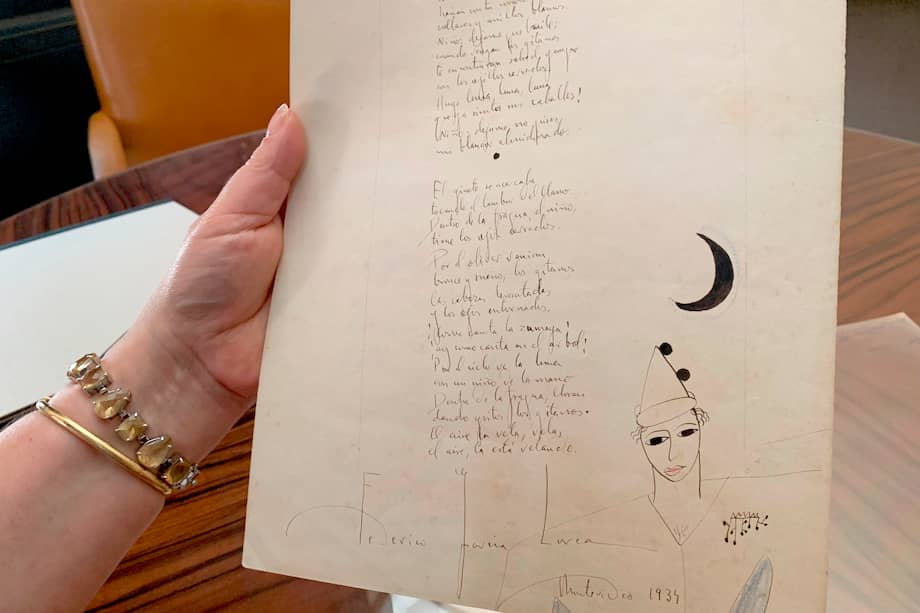 collares y anillos blancos.
Niño, dejame que baile;
cuando vengan los gitanos
te encontraran sobre el yunque
con los ojillos cerrados
Huye luna, luna, luna
que ya siento sus caballos!
Niño, dejame, no pises
mi blancor almidonado.
El ginete se acercaba
tocando el tambor del llano.
Dentro de la fragua, el niño,
tiene los ojos cerrados.
Por el olivar venian
bronce y sueño, los gitanos
las cabezas levantadas
y los ojos entornados.
¡Como canta la zumaya!
¡ay como canta en el arbol!
Por el cielo va la luna
con un niño de la mano
Dentro de la fragua, lloran
dando gritos, los gitanos.
El aire la vela, vela,
el aire, la está velando.
Federico García Lorca
Montevideo 1934